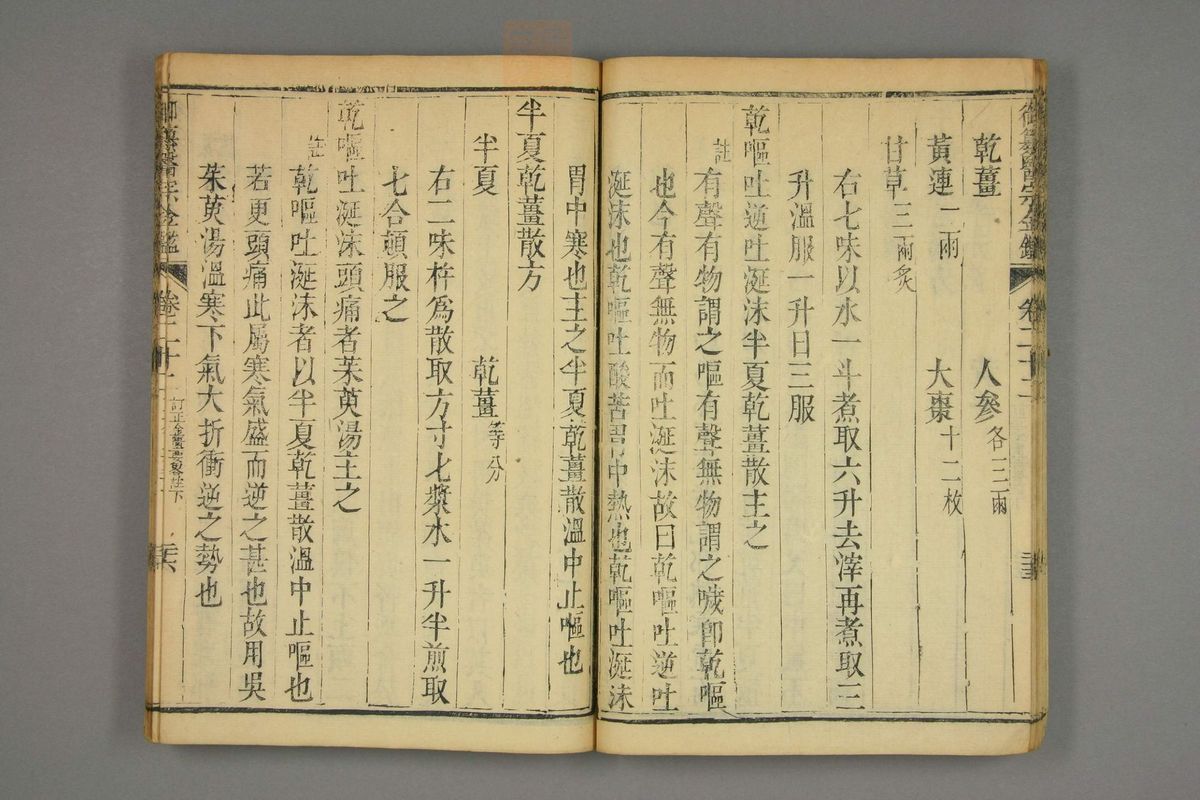 御纂醫宗金鑑 卷二十二
乾薑 人參各三兩
黃連一兩 大棗十二枚
甘草三兩炙
右七味以水一斗煮取六升去滓再煮取三
升溫服一升日三服
乾嘔吐逆吐涎沫半夏乾薑散主之
註 有聲有物謂之嘔有聲無物謂之噦卽乾嘔
也今有聲無物而吐涎沫故曰乾嘔吐逆吐
涎沫也乾嘔吐酸苦胃中熱也乾嘔吐涎沫
胃中寒也主之半夏乾薑散溫中止嘔也
半夏乾薑散方
半夏 乾薑等分
右二味杵爲散取方寸匕漿水一升半煎取
七合頓服之
乾嘔吐涎沫頭痛者茱萸湯主之
註 乾嘔吐涎沫者以半夏乾薑散溫中止嘔也
若更頭痛此屬寒氣盛而逆之甚也故用吳
茱萸湯溫寒下氣大折衝逆之勢也
御纂醫宗金鑑 卷二十二 訂正金匱要畧註下